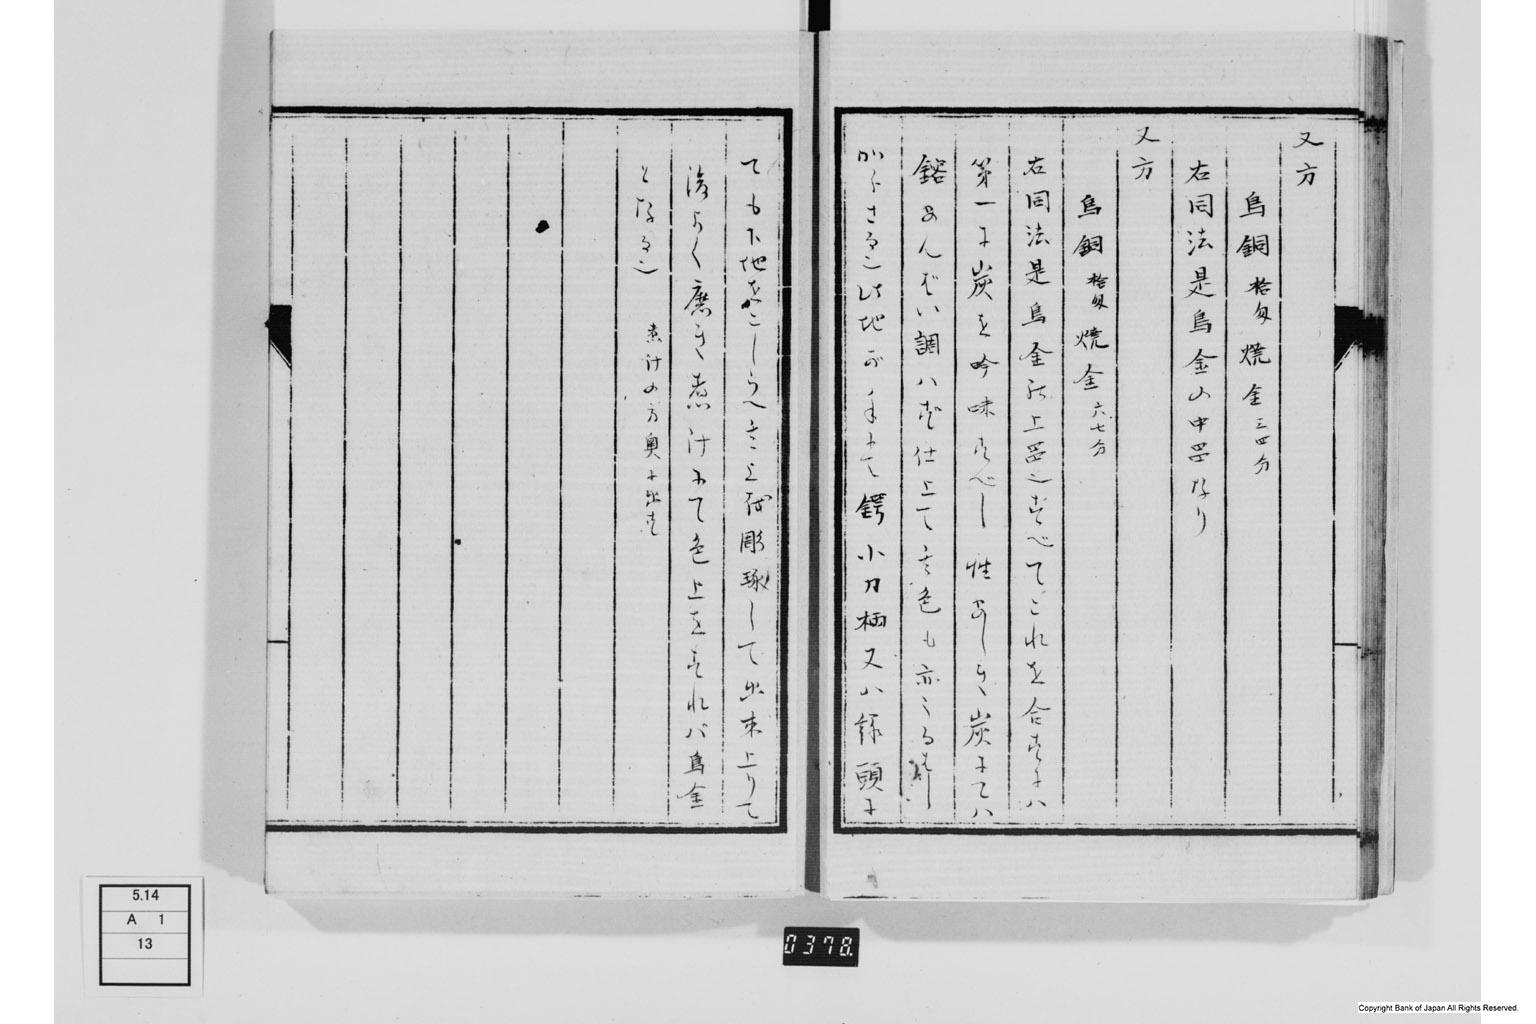 又方
烏銅 拾匁 焼金 三四分
右同法是烏金の中品なり
又方
烏銅 拾匁 焼金 六七分
右同法是烏金の上品也すべてこれを合すには
第一に炭を吟味すべし性あしき炭にては
鎔あんばい調はず仕上て其色も亦
からざる也此地が手にて鍔小刀柄又は縁頭に
ても下地をこしらへ其上を彫琢して出来上りて
後よく磨き煮汁にて色上をすれバ烏金
となる也 煮汁の方奥に出す
5.14
A 1
13
0378
Copyright Bank of Japan All Rights Reserved.